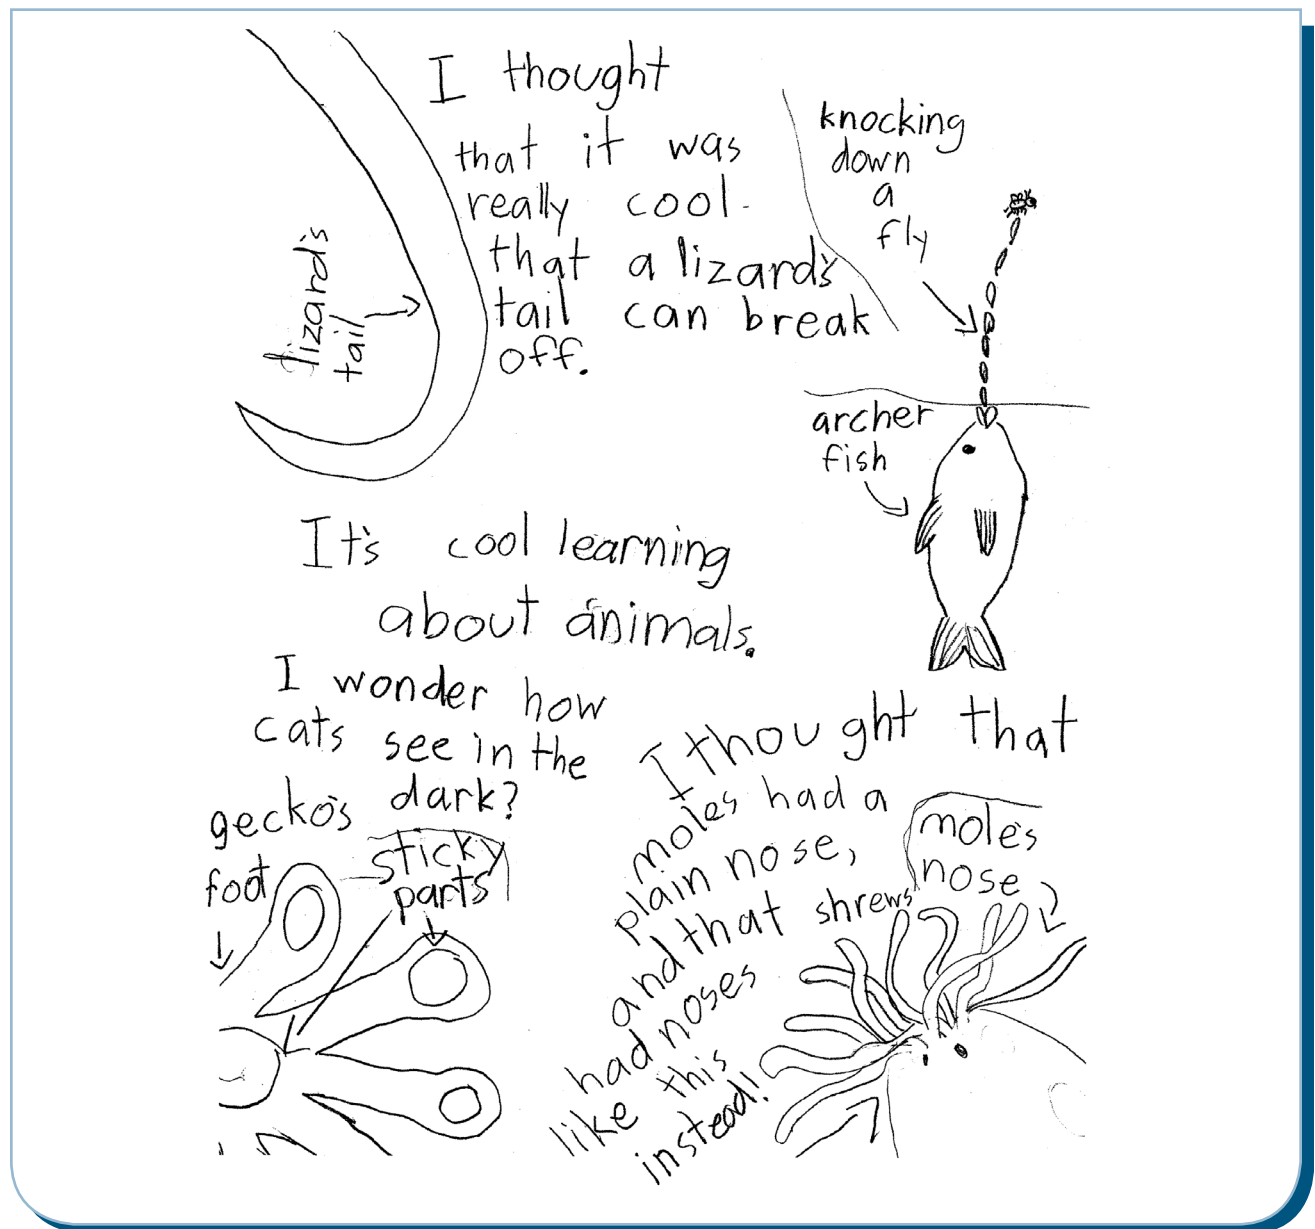 I thought
that it was
really cool
that a lizard's
tail can break
off.
lizard's
tail
knocking
down
a
fly
archer
fish
It's cool learning
about animals.
I wonder how
cats see in the
dark?
gecko's
foot
sticky
parts
I thought that
moles had a
plain nose,
and that shrews
had noses
like this
instead!
mole's
nose